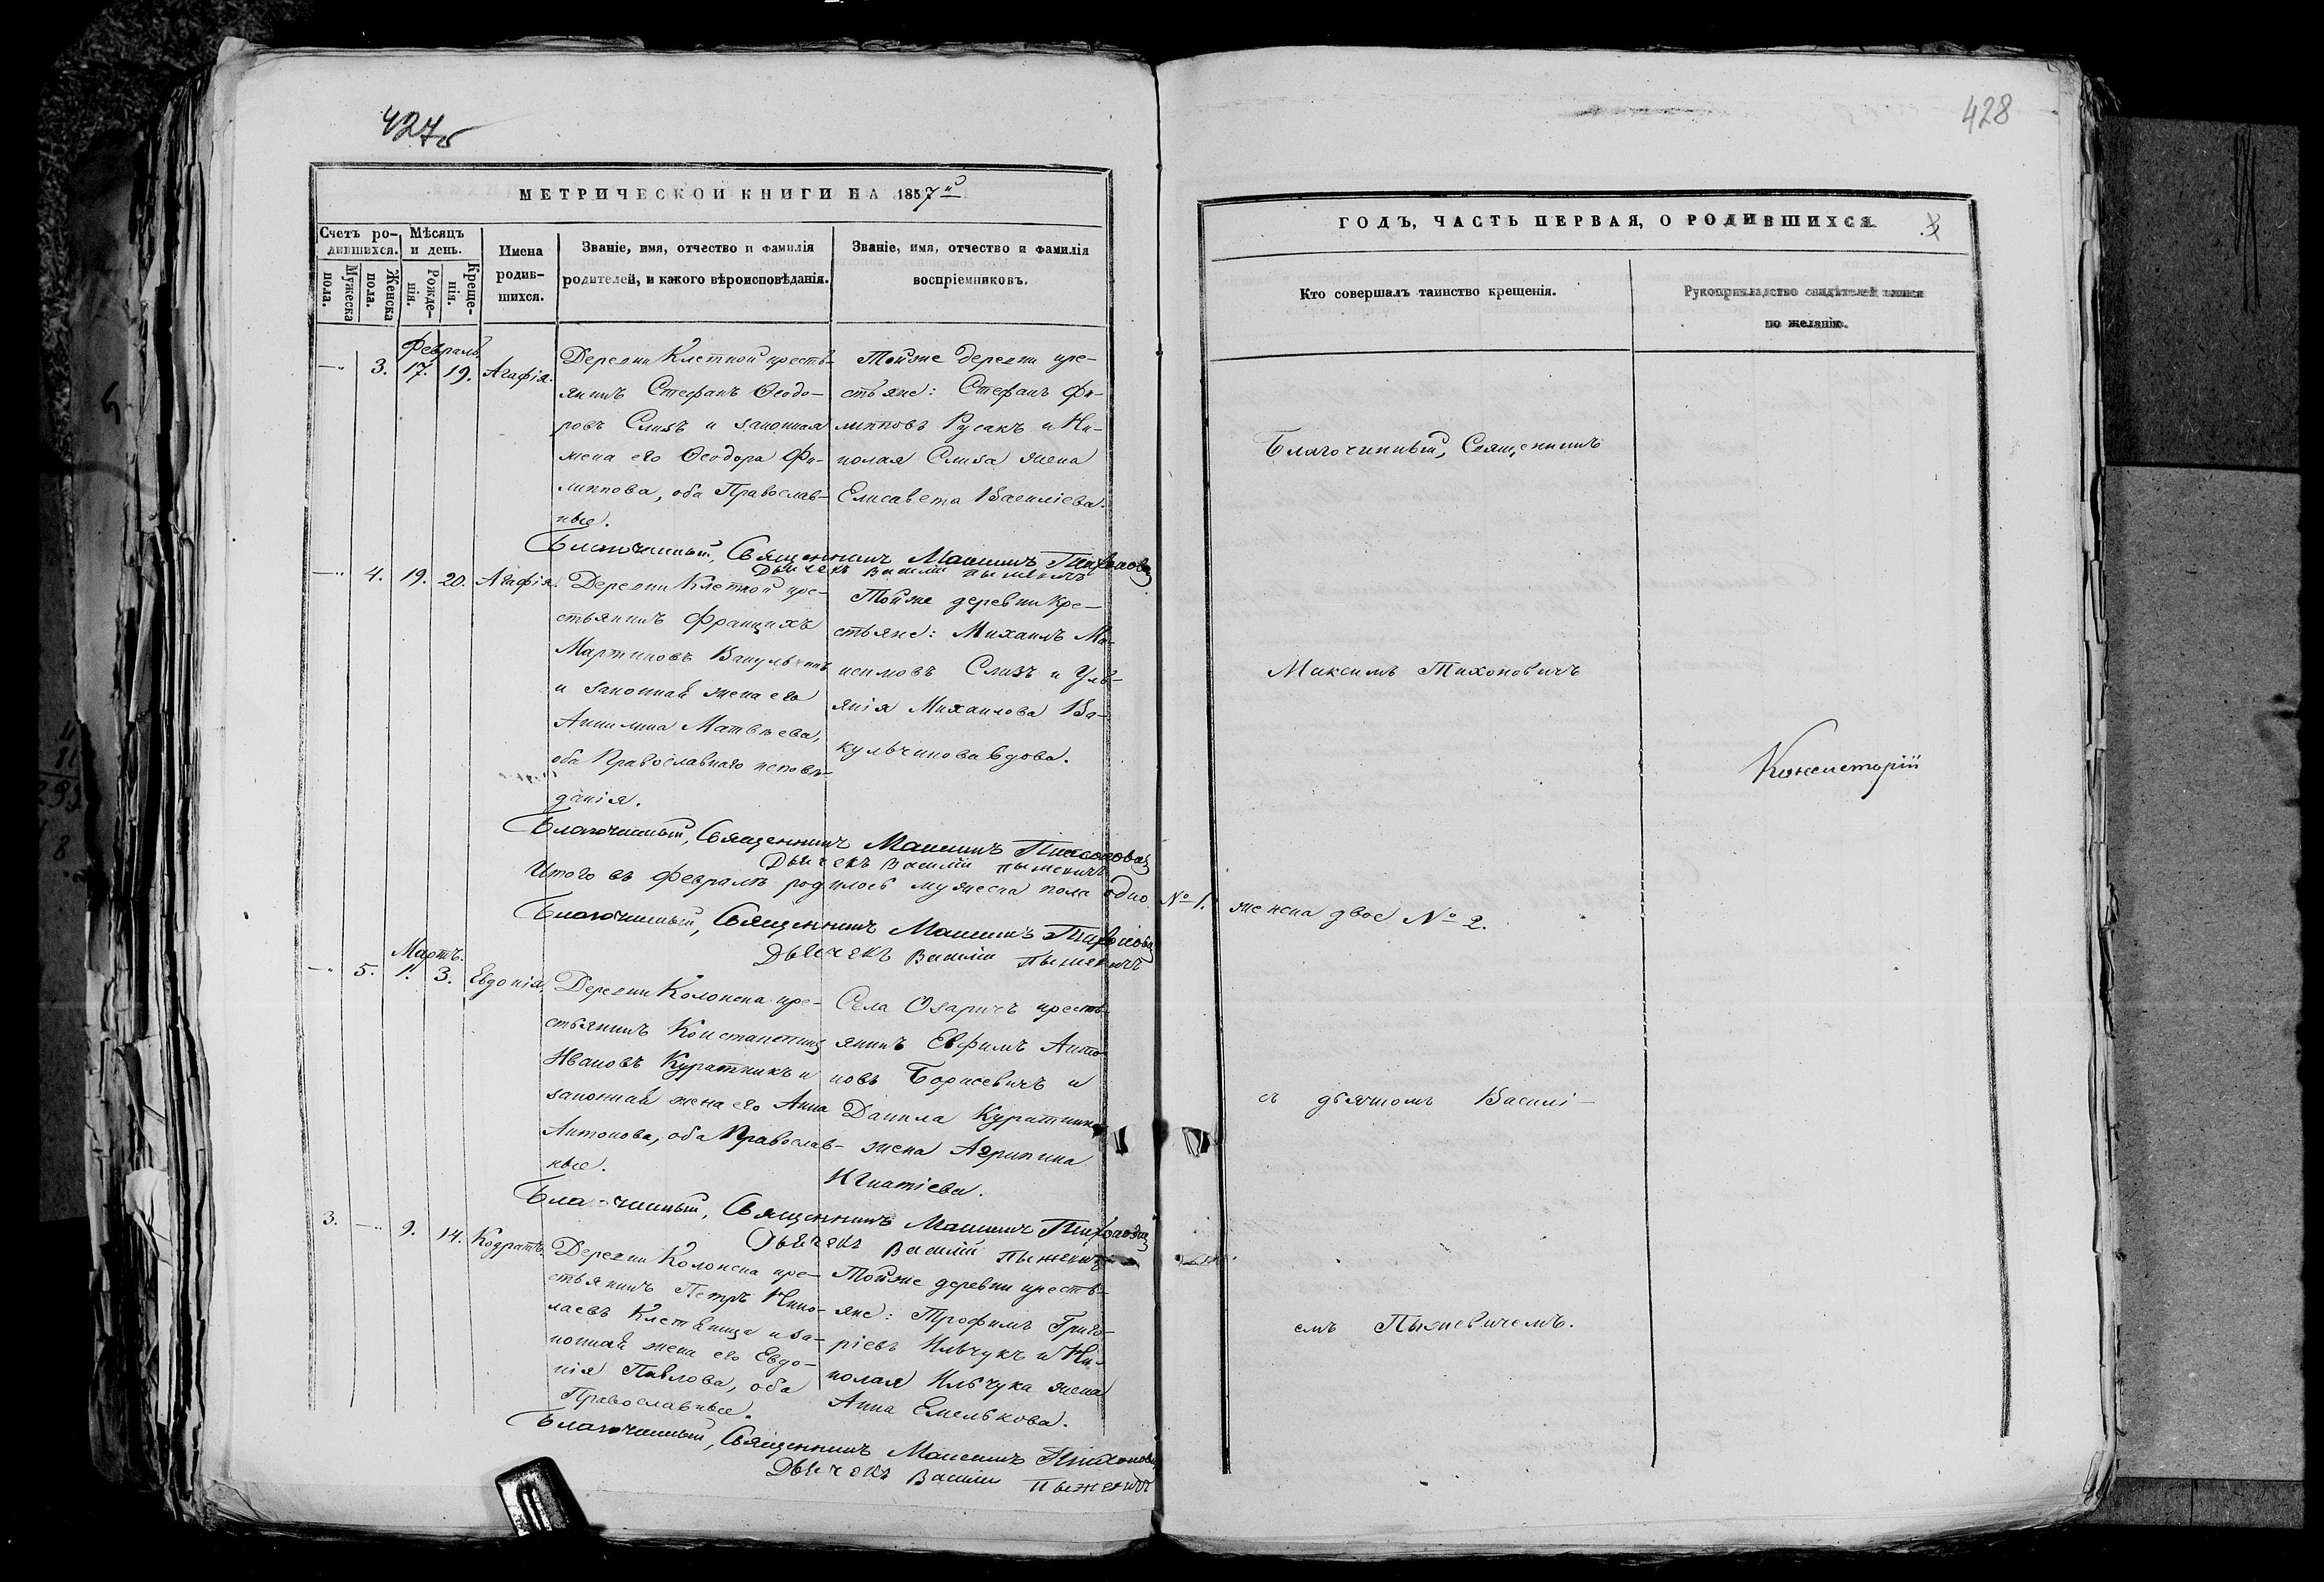 427б
428
МЕТРИЧЕСКОЙ КНИГИ НА 1857й
ГОДЪ, ЧАСТЬ ПЕРВАЯ, О РОДИВШИХСЯ.
Счетъ ро-
дившихся.
Мѣсяцъ
и день.
Мужеска
пола.
Женска
пола.
Рожде-
нія.
Креще-
нія.
Имена
родив-
шихся.
Званіе, имя, отчество и фамилія
родителей, и какого вѣроисповѣданія.
Званіе, имя, отчество и фамилія
воспріемниковъ.
Кто совершалъ таинство крещенія.
Рукоприкладство свидѣтелей записи
по желанію.
Февраль.
3. 17. 19. Агафія.
Деревни Клетной кресть-
янинъ Стефанъ Ѳеодо-
ровъ Слизъ и законная
жена его Ѳеодора Фи-
липпова, оба Православ-
ные.
Тойже деревни кре-
стьяне: Стефанъ Фи-
липповъ Русакъ и Ни-
колая Слиза жена
Елисавета Василіева.
Благочинный, Священникъ Максимъ Тихонович
Дьячекъ Василій Пыжевичъ
4. 19. 20. Агафія.
Деревни Клетной кре-
стьянинъ Францихъ
Мартиновъ Вакульчикъ
и законная жена его
Аннимиа Матвѣева,
оба Православнаго исповѣ-
данія.
Тойже деревни Кре-
стьяне: Михаилъ Ма-
ксимовъ Слизъ и Уль-
янія Михаилова Ва-
кульчикова вдова.
Благочинный, Священникъ Максимъ Тихонович
Дьячекъ Василій Пыжевичъ
Итого въ Февралѣ родилось мужеска пола одно № 1. женска двое № 2.
Благочинный, Священникъ Максимъ Тихонович
Дьячекъ Василій Пыжевичъ
Мартъ.
5. 1. 3. Евдокія.
Деревни Колонска кре-
стьянинъ Константинъ
Ивановъ Куратникъ и
законная жена его Анна
Антонова, оба Православ-
ные.
Села Озаричъ кресть-
янинъ Евфимъ Анто-
новъ Борисевичъ и
Данила Куратника
жена Агрипина
Игнатіева.
Благочинный, Священникъ Максимъ Тихонович
Дьячекъ Василій Пыжевичъ
3. 9. 14. Кодратъ.
Деревни Колонска кре-
стьянинъ Петръ Нико-
лаевъ Клетьница и за-
конная жена его Евдо-
кія Павлова, оба
Православные.
Тойже деревни кресть-
яне: Трофимъ Григо-
ріевъ Ильчукъ и Ни-
колая Ильчука жена
Анна Емелькова.
Благочинный, Священникъ Максимъ Тихонович
Дьячекъ Василій Пыжевичъ
Благочинный, Священникъ
Максимъ Тихоновичъ
съ дьячкомъ Василі-
емъ Пыжевичемъ.
Консисторіи